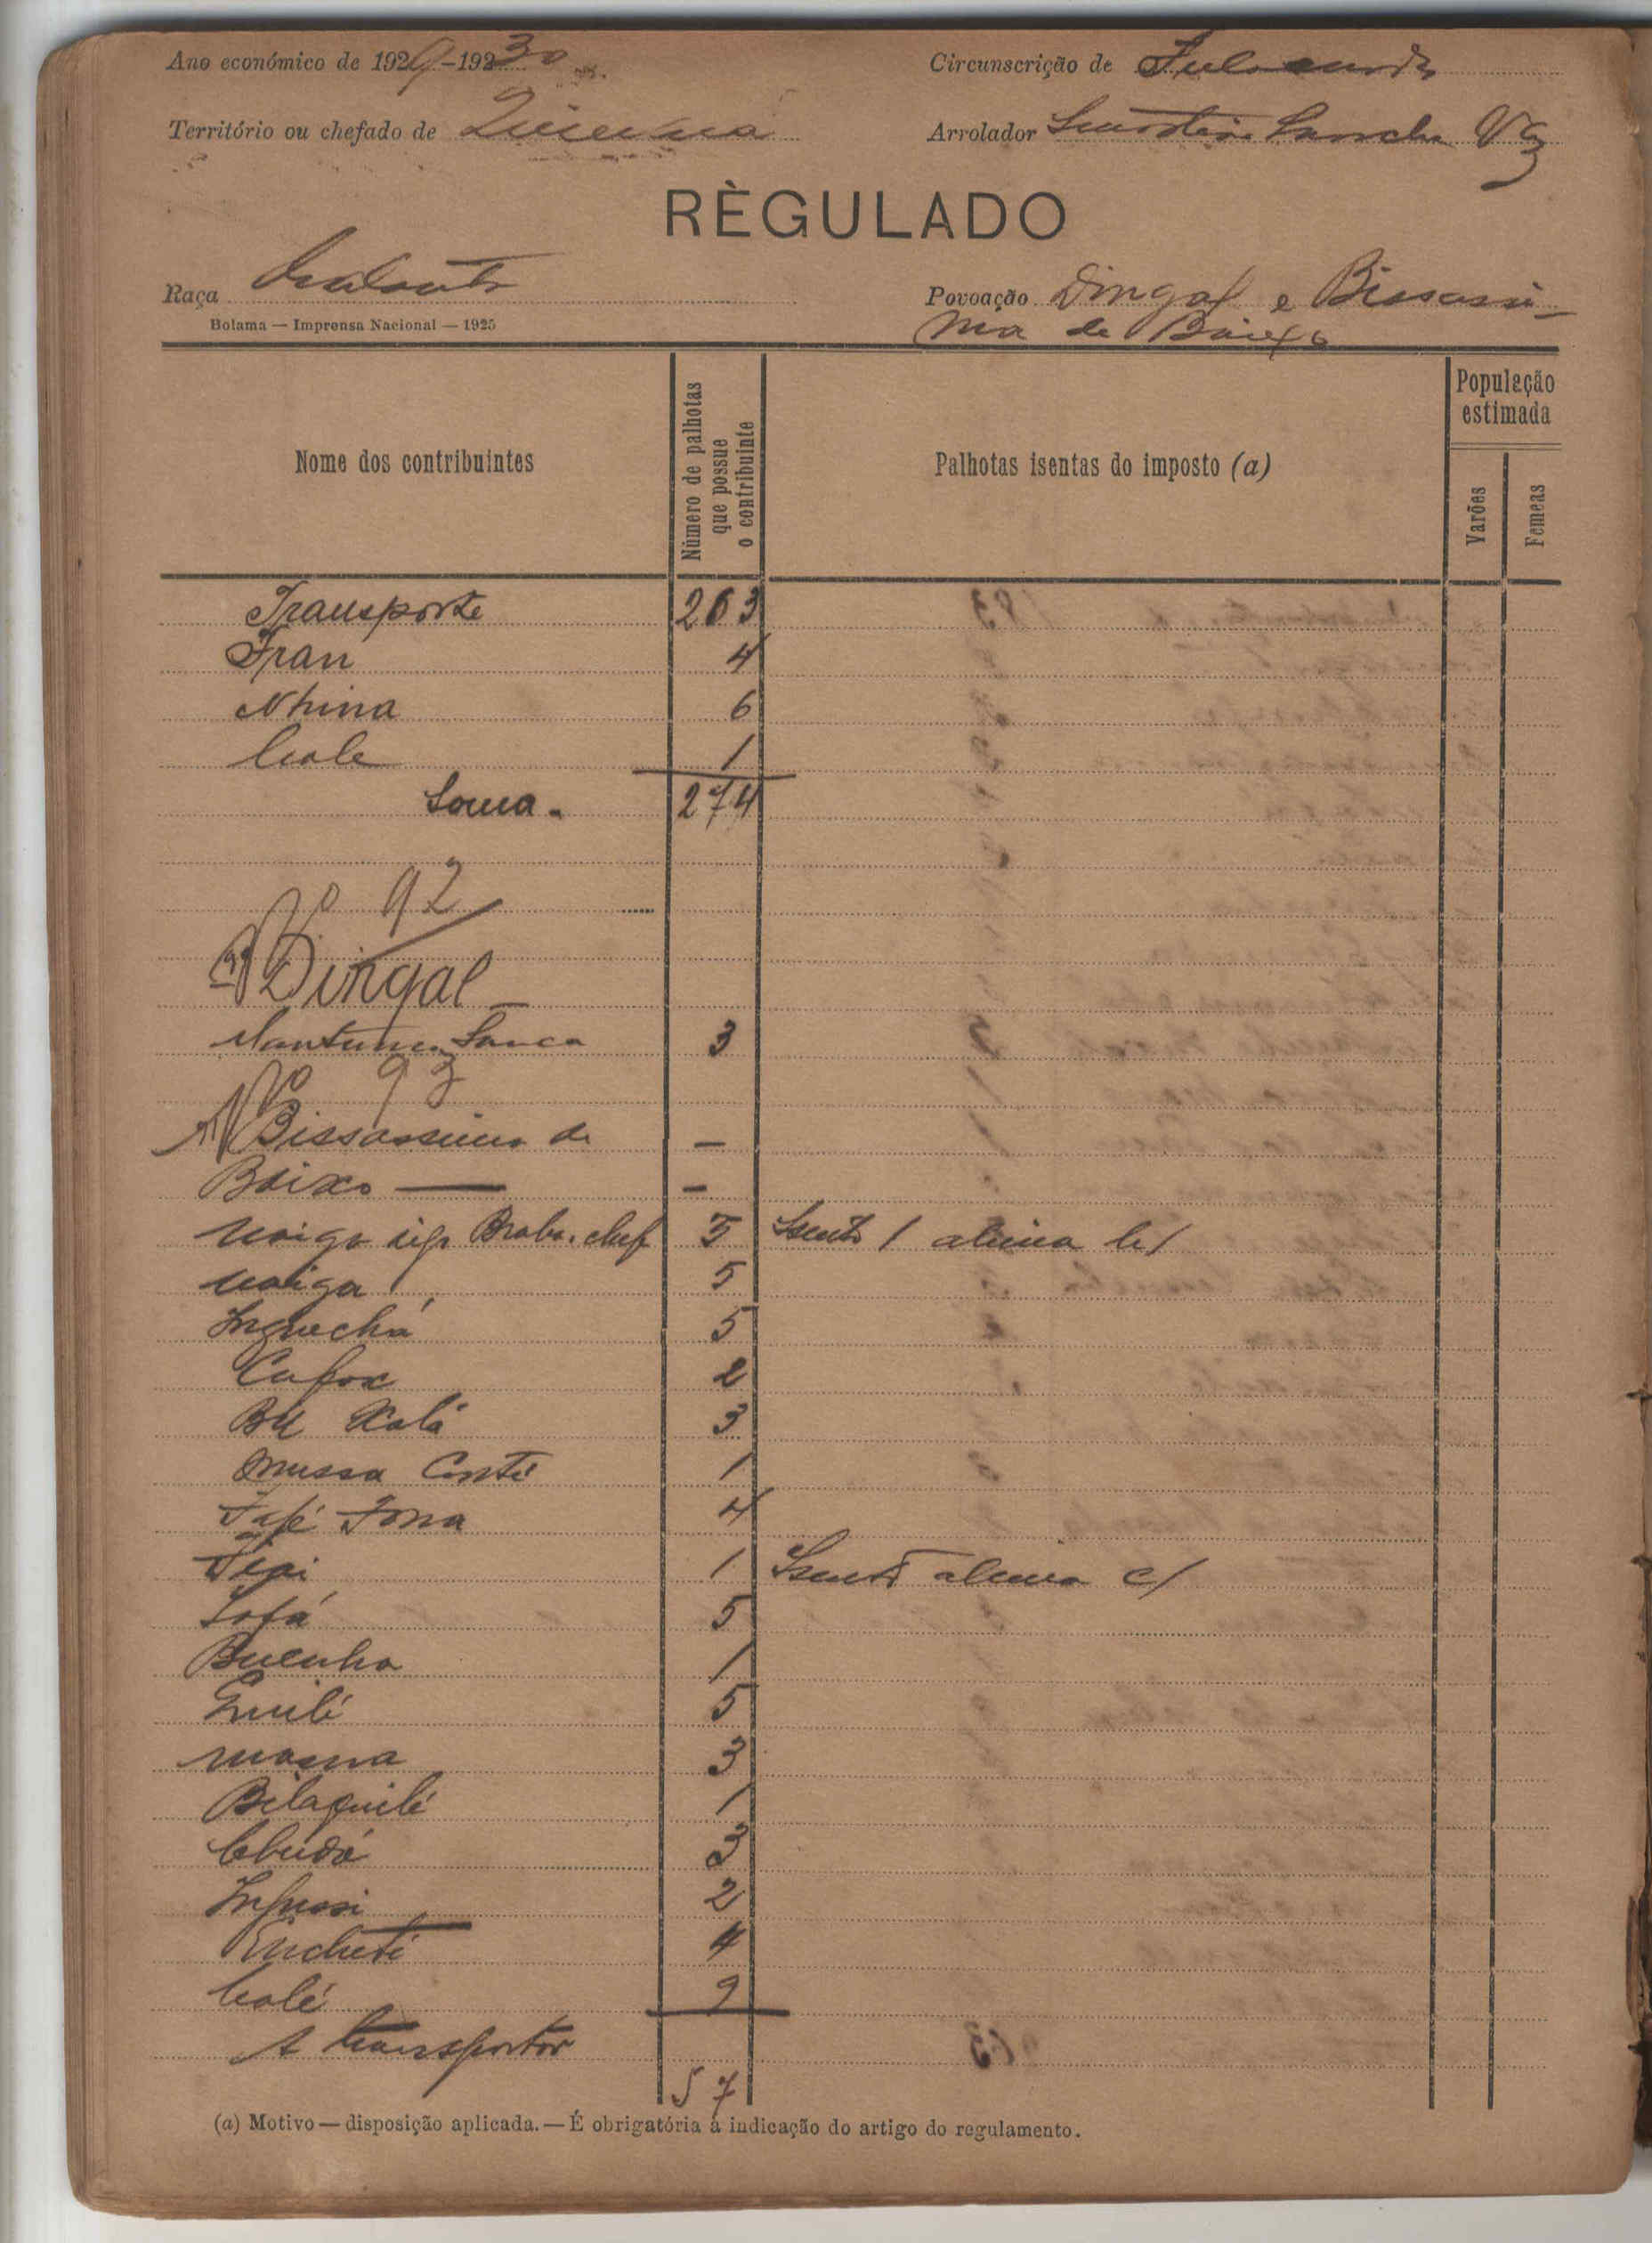 Ano económico de 1929-1930
Circunscrição de Fulacunda
Território ou chefado de Quinará
Arrolador Vaz
RÈGULADO
Raça Balanta
Povoação Dingal e Bissassi-
ma de Baixo
Bolama — Imprensa Nacional — 1925
Nome dos contribuintes
Número de palhotas que possue o contribuinte
Palhotas isentas do imposto (a)
População estimada
Varões
Femeas
Transporte 263
Fran 4
Nhina 6
Cole 1
Soma - 274
Nº 92
Dingal
Mantune Sanca 3
Nº 93
Bissassima de —
Baixo — —
Naiga 5 Isento 1 alinea b/
Naiga 5
Inguechá 5
Cufox 2
Bu Xalá 3
Mussa Conté 1
Fafé Fona 4
1 Isento alinea c/
Sofá 5
Bucunha 1
5
3
Bilaquilé 1
3
2
4
Colé 9
A transportar
57
(a) Motivo — disposição aplicada. — É obrigatória a indicação do artigo do regulamento.